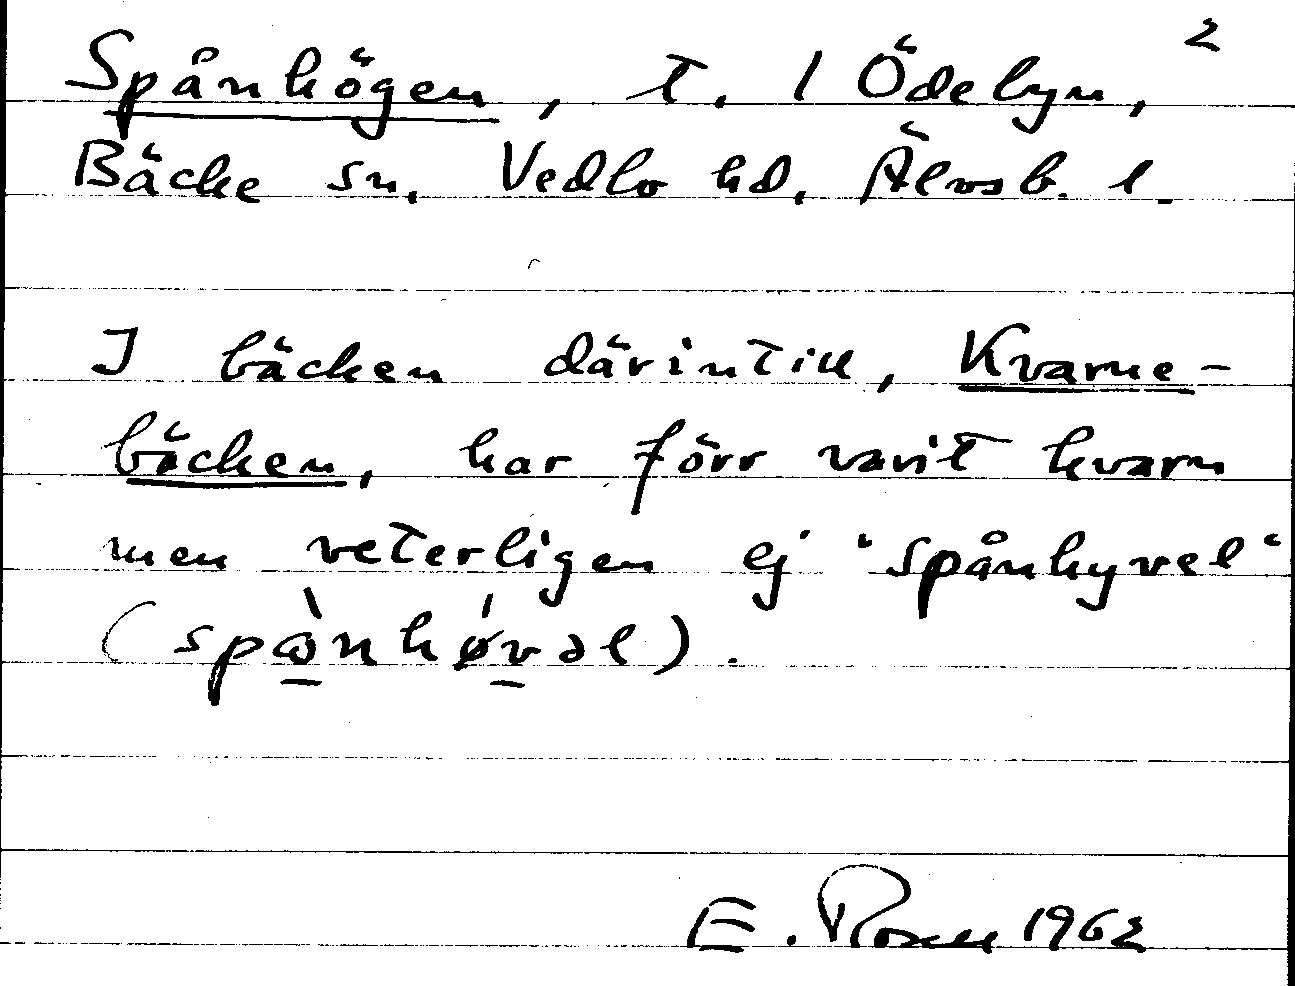 2
Spånhögen, t. 1 Ödebyn,
Bäcke sn, Vedbo hd, Älvsb. l.
I bäcken därintill, Kvarne-
bäcken, har förr varit kvarn
men veterligen ej "spånhyvel"
(spà̱nhø̍v̱əl).
E. Rosell 1962